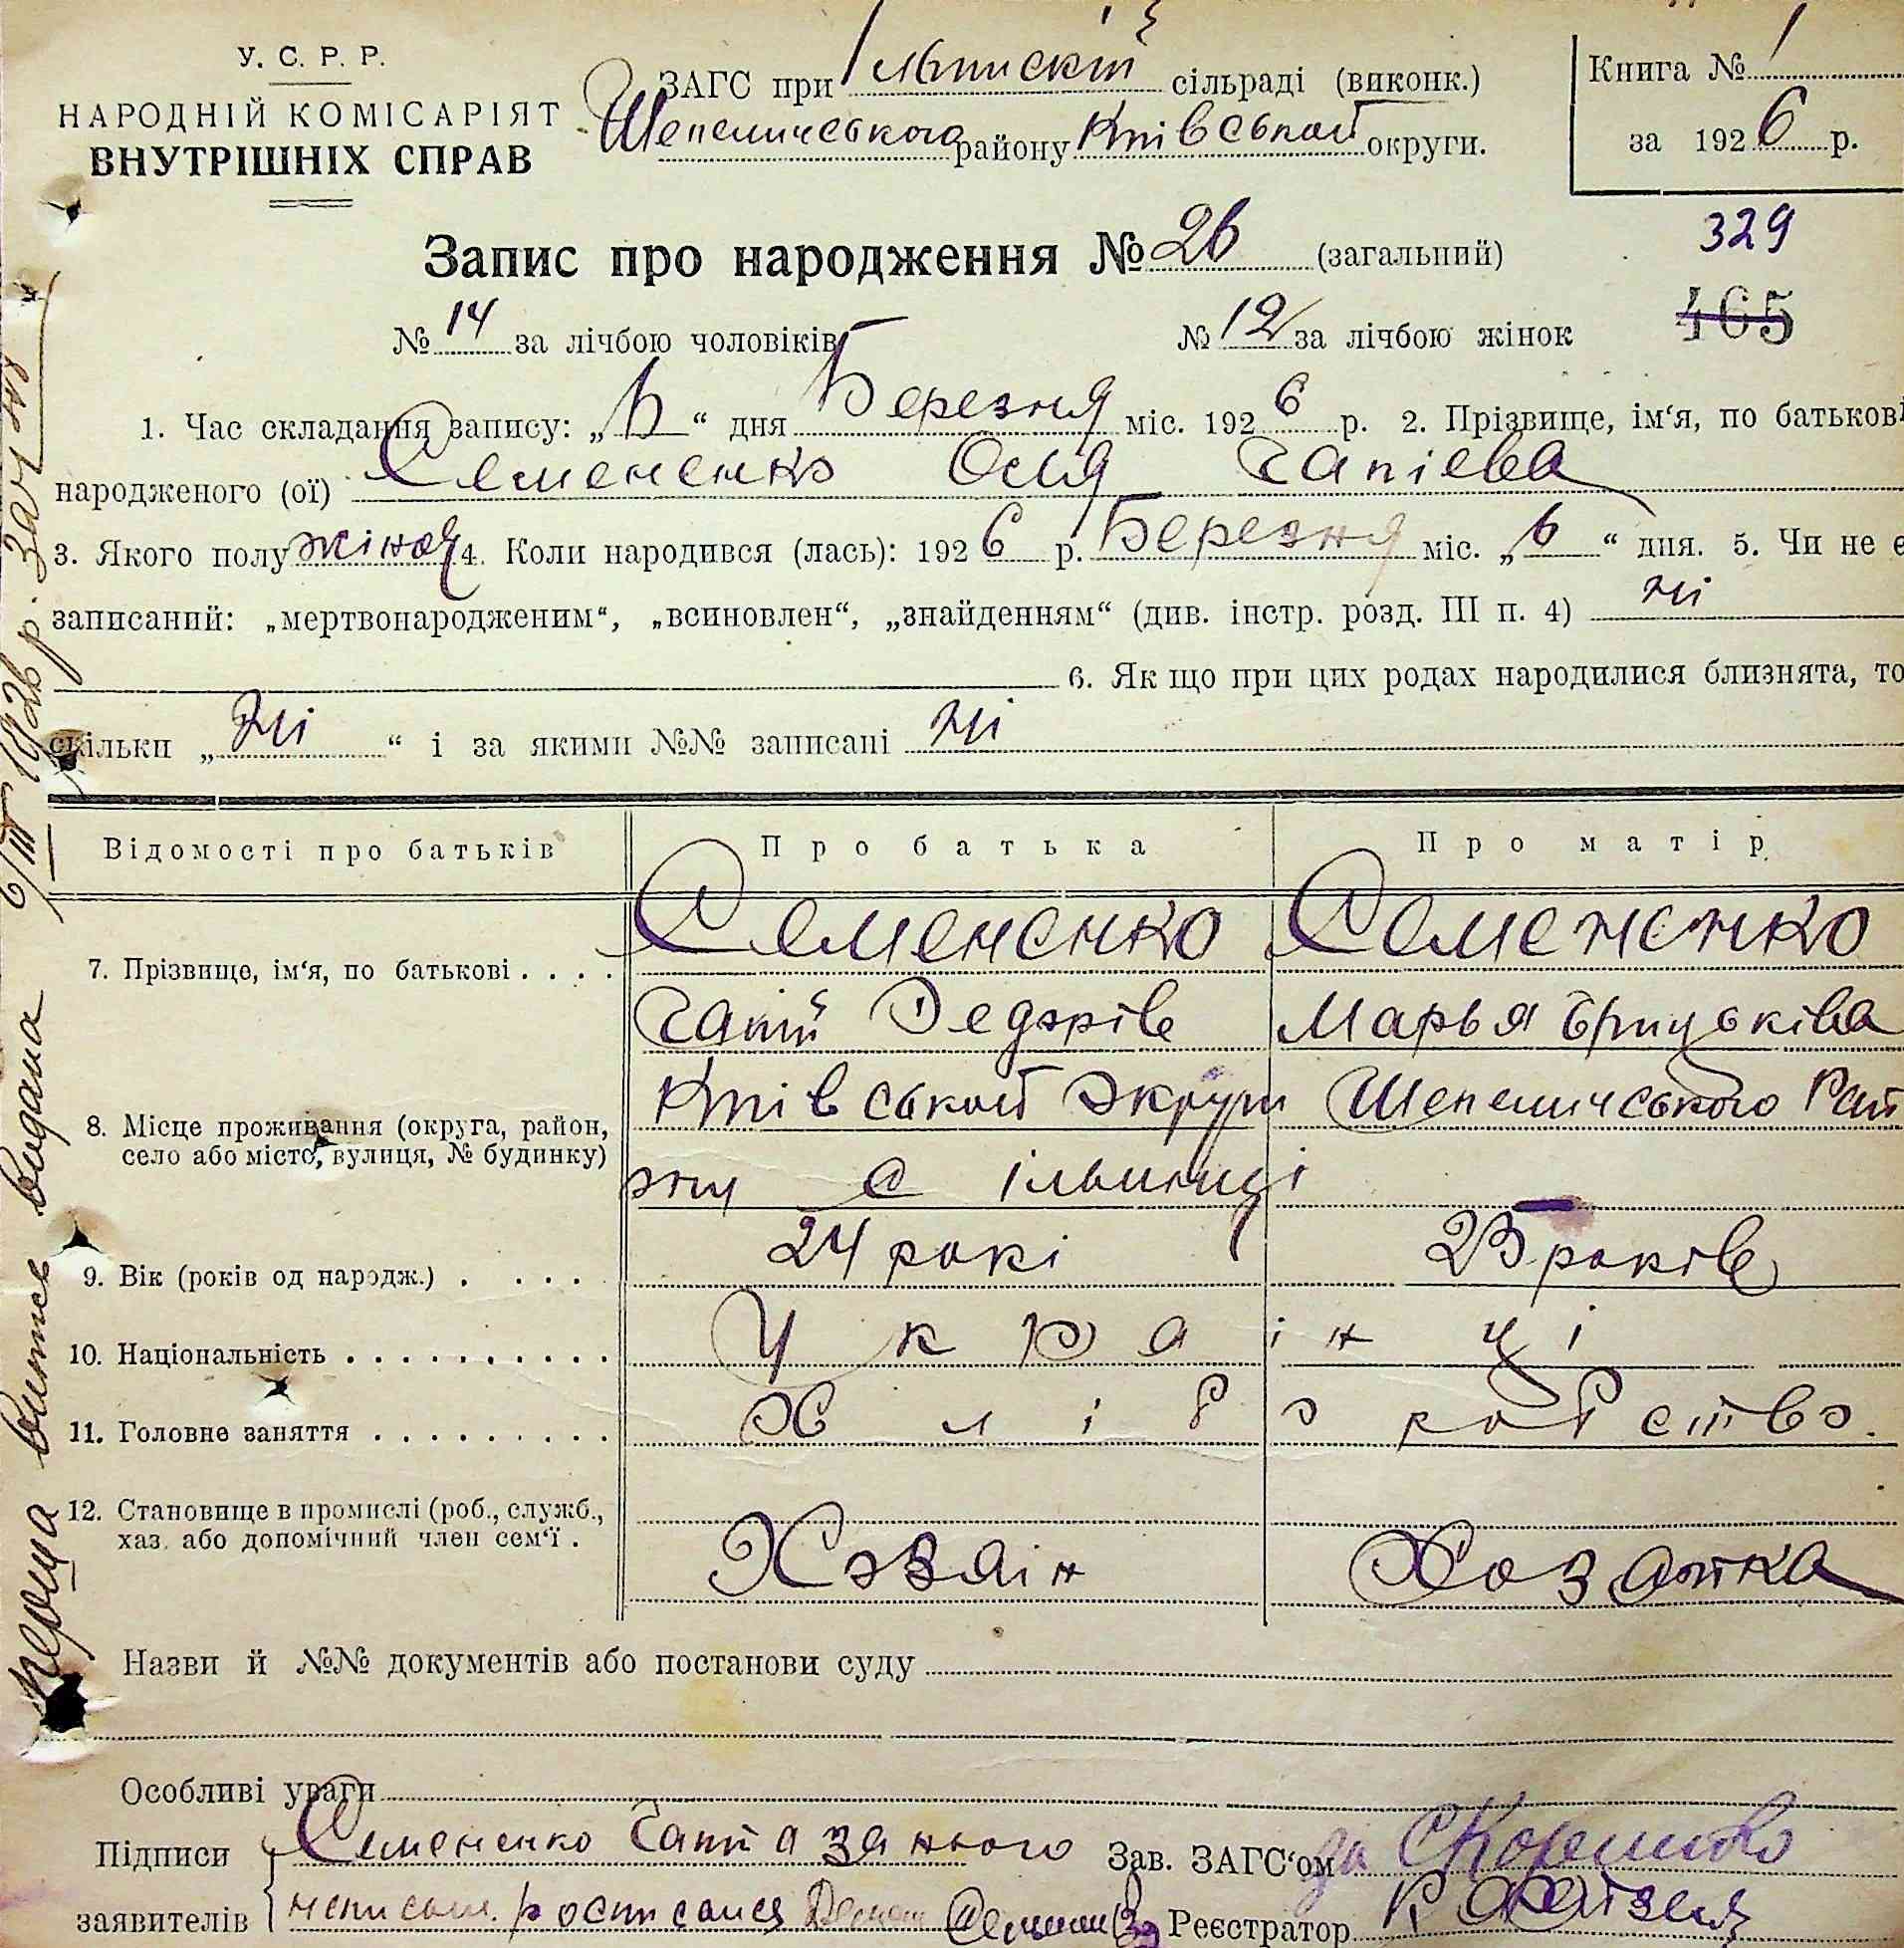 У. С. Р. Р.
НАРОДНІЙ КОМІСАРІЯТ
ВНУТРІШНІХ СПРАВ
ЗАГС при сільраді (виконк.)
Шепелицського району Київської округи.
Книга № 1
за 1926 р.
329
465
Запис про народження № 26 (загальний)
№ 14 за лічбою чоловіків № 12 за лічбою жінок
1. Час складання запису: „6“ дня Березня міс. 1926 р. 2. Прізвище, ім‘я, по батькові
народженого (ої) Семененко Гапієва
3. Якого полу жіноч 4. Коли народився (лась): 1926 р. Березня міс. „6“ дня. 5. Чи не є
записаний: „мертвонародженим“, „всиновлен“, „знайденням“ (див. інстр. розд. III п. 4) ні
6. Як що при цих родах народилися близнята, то
скільки „ ні “ і за якими №№ записані ні
Відомості про батьків Про батька Про матір
7. Прізвище, ім‘я, по батькові . . . . Семененко Семененко
Гапій Федорів Марья Грицьківа
8. Місце проживання (округа, район, село або місто, вулиця, № будинку) Київської округи Шепелицського Рай
ону с Ільинці
9. Вік (років од народж.) . . . . 24 рокі 23 років
10. Національність . . . . . . . . . . Українці
11. Головне заняття . . . . . . . . . Хліборобство.
12. Становище в промислі (роб., служб., хаз. або допомічний член сем‘ї . Хозяін Хозяйка
Назви й №№ документів або постанови суду
Особливі уваги
Підписи заявителів Семененко Гапій а за нього
неписьм. росписался
Зав. ЗАГС‘ом за
Реєстратор
перша витись видана 6/III 1926 р.